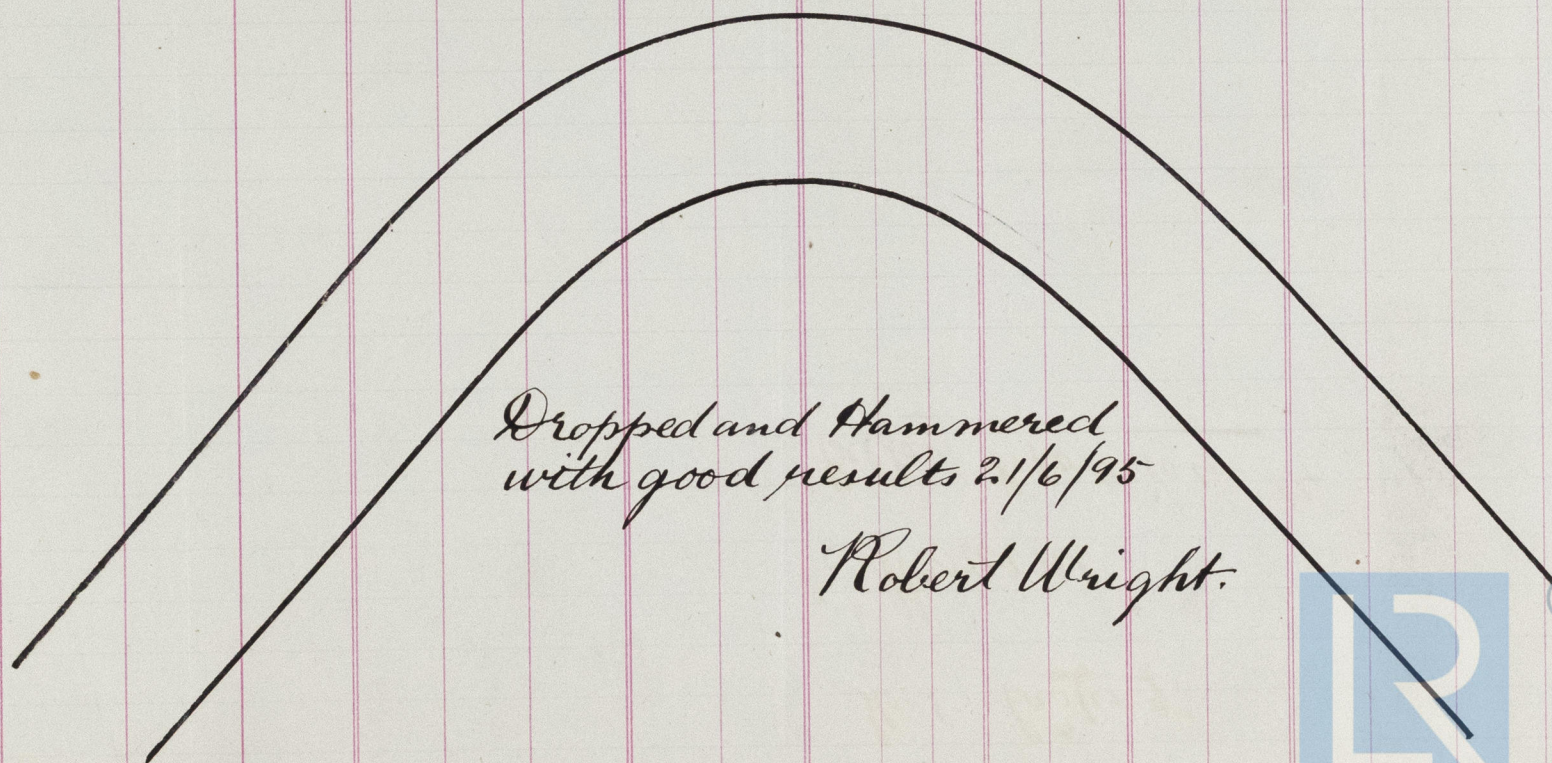 Dropped and Hammered
with good results 21/6/95
Robert Wright.
LR